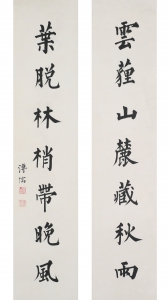 雲薶山麓藏秋雨
葉脫林梢帶晚風
溥佑